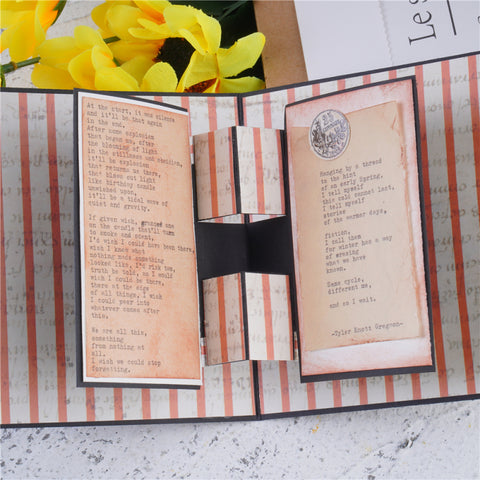 At the start, it was silence
and it'll be that again
in the end.
After some explosion
that began us, after
the blooming of light
in the stillness and obsidian,
it'll be explosion
that returns us there,
that blows out light
like birthday candle
unwished upon,
it'll be a tidal wave of
quiet and gravity.
If given wish, granted one
on the candle that'll turn
to smoke and scent,
I'd wish I could have been there,
wish I knew what
nothing made something
looked like, I'd risk too,
truth be told, so I would
wish I could be there,
there at the edge
of all things, I wish
I could peer into
whatever comes after
this.
We are all this,
something
from nothing at
all.
I wish we could stop
forgetting.
Hanging by a thread
to the hint
of an early Spring,
I tell myself
this cold cannot last,
I tell myself
stories
of the warmer days,
fiction,
I call them
for winter has a way
of erasing
what we have
known.
Same cycle,
different me,
and so I wait.
-Tyler Knott Gregson-
Les